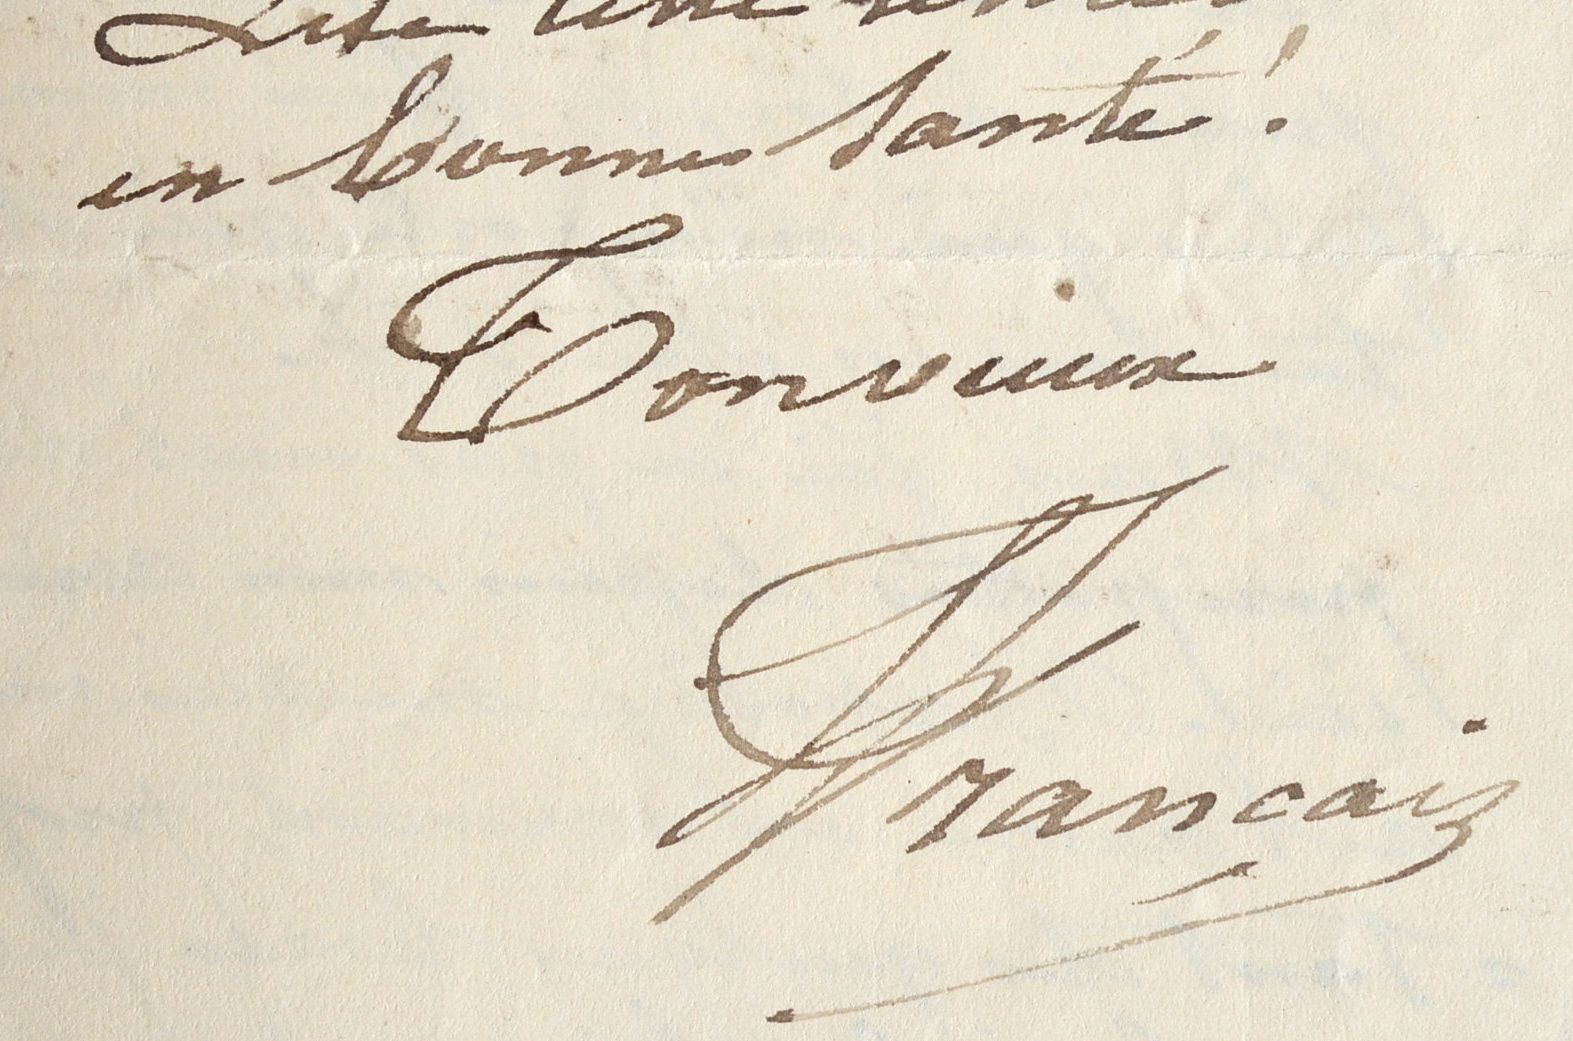 en bonne santé!
Ton vieux
Français